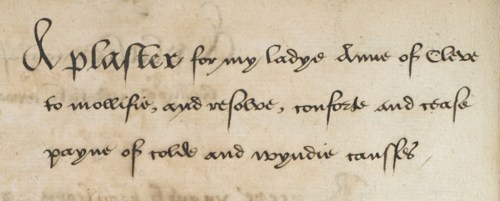 A plaster for my ladye Anne of Cleve
to mollifie, and resolve, conforte and cease
payne of colde and wyndie causses